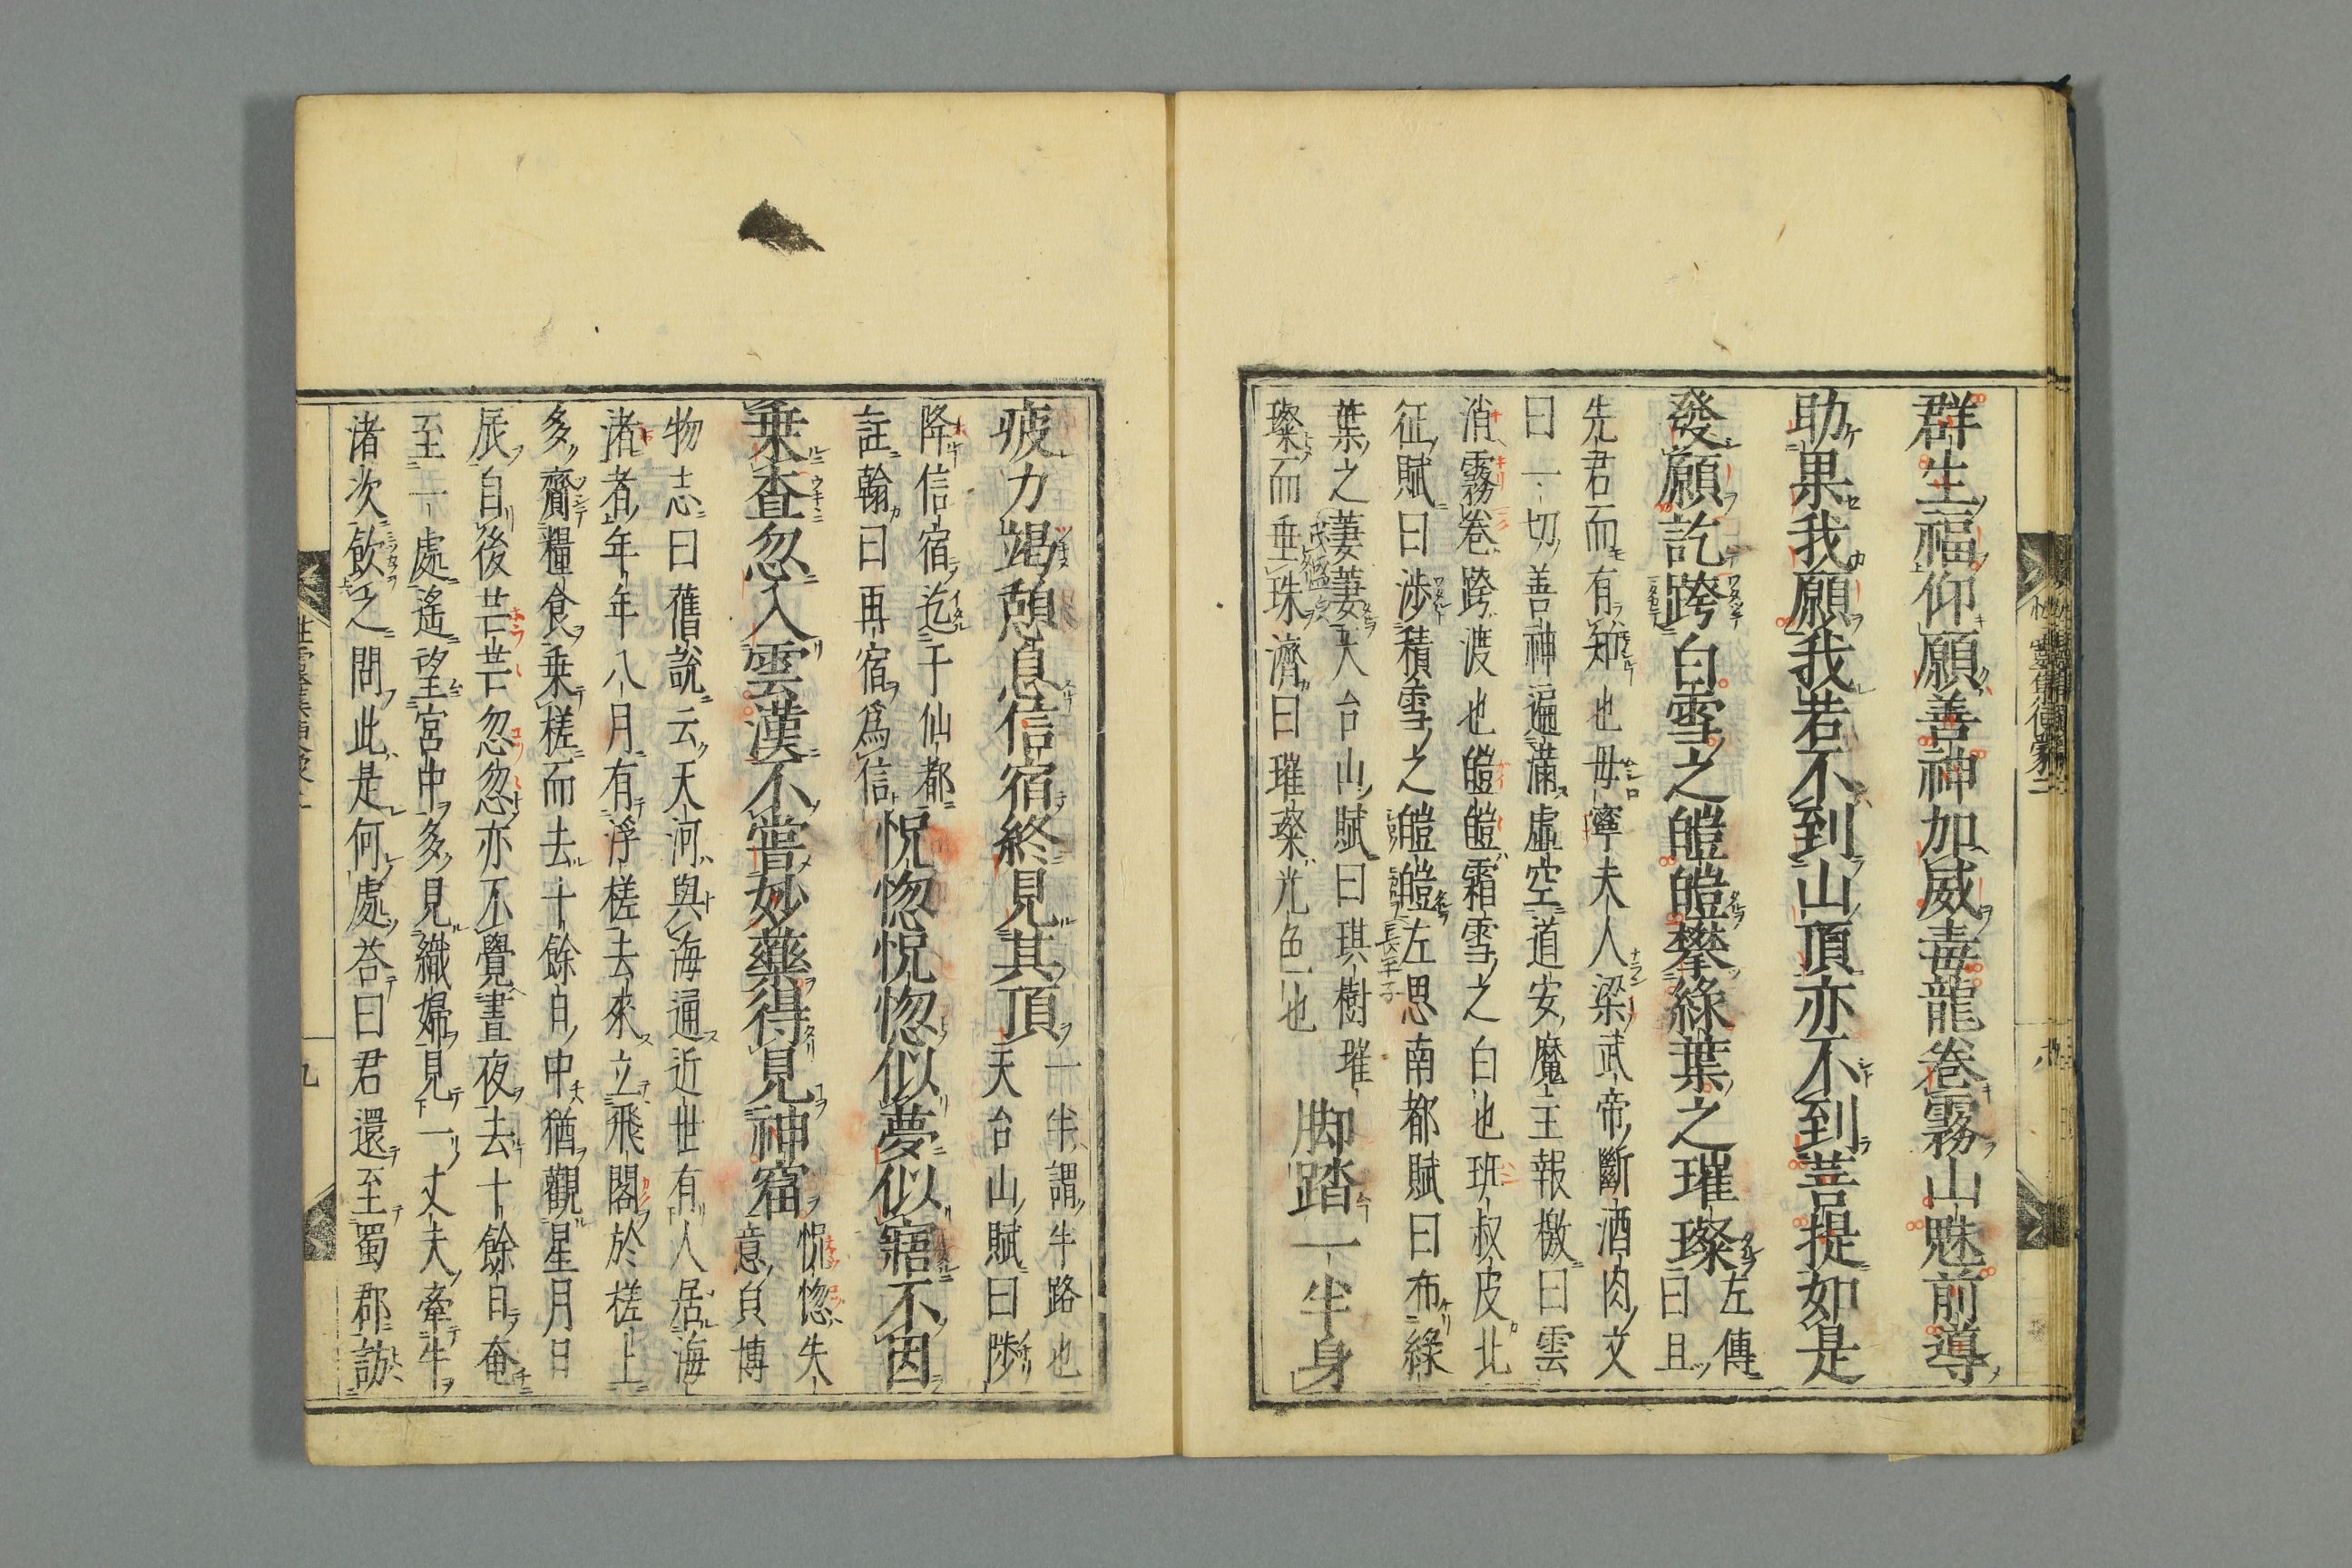 群生福仰願善神加威毒龍卷霧山魅前導
助果我願我若不到山頂亦不到菩提如是
發願訖跨白雪之皚皚攀綠葉之璀璨左傳
曰且
先君而有知也毋寧夫人梁武帝斷酒肉文
曰一切善神遍滿虛空道安魔王報檄曰雲
消霧卷跨渡也皚皚霜雪之白也班叔皮北
征賦曰涉積雪之皚皚左思南都賦曰布綠
葉之萋萋天台山賦曰琪樹璀
璨而垂珠濟曰璀璨光色也
脚踏一半身
疲力竭憩息信宿終見其頂一半謂半路也
天台山賦曰陟
降信宿迄于仙都
註翰曰再宿爲信
怳惚怳惚似夢似寤不因
乗查忽入雲漢不嘗妙藥得見神窟怳惚失
意皃博
物志曰舊說云天河與海通近世有人居海
渚者年年八月有浮槎去來立飛閣於槎上
多齎糧食乗槎而去十餘日中猶觀星月日
辰自後芒芒忽忽亦不覺晝夜去十餘日奄
至一處遙望宮中多見織婦見一丈夫牽牛
渚次飲之問此是何處荅曰君還至蜀郡訪
九